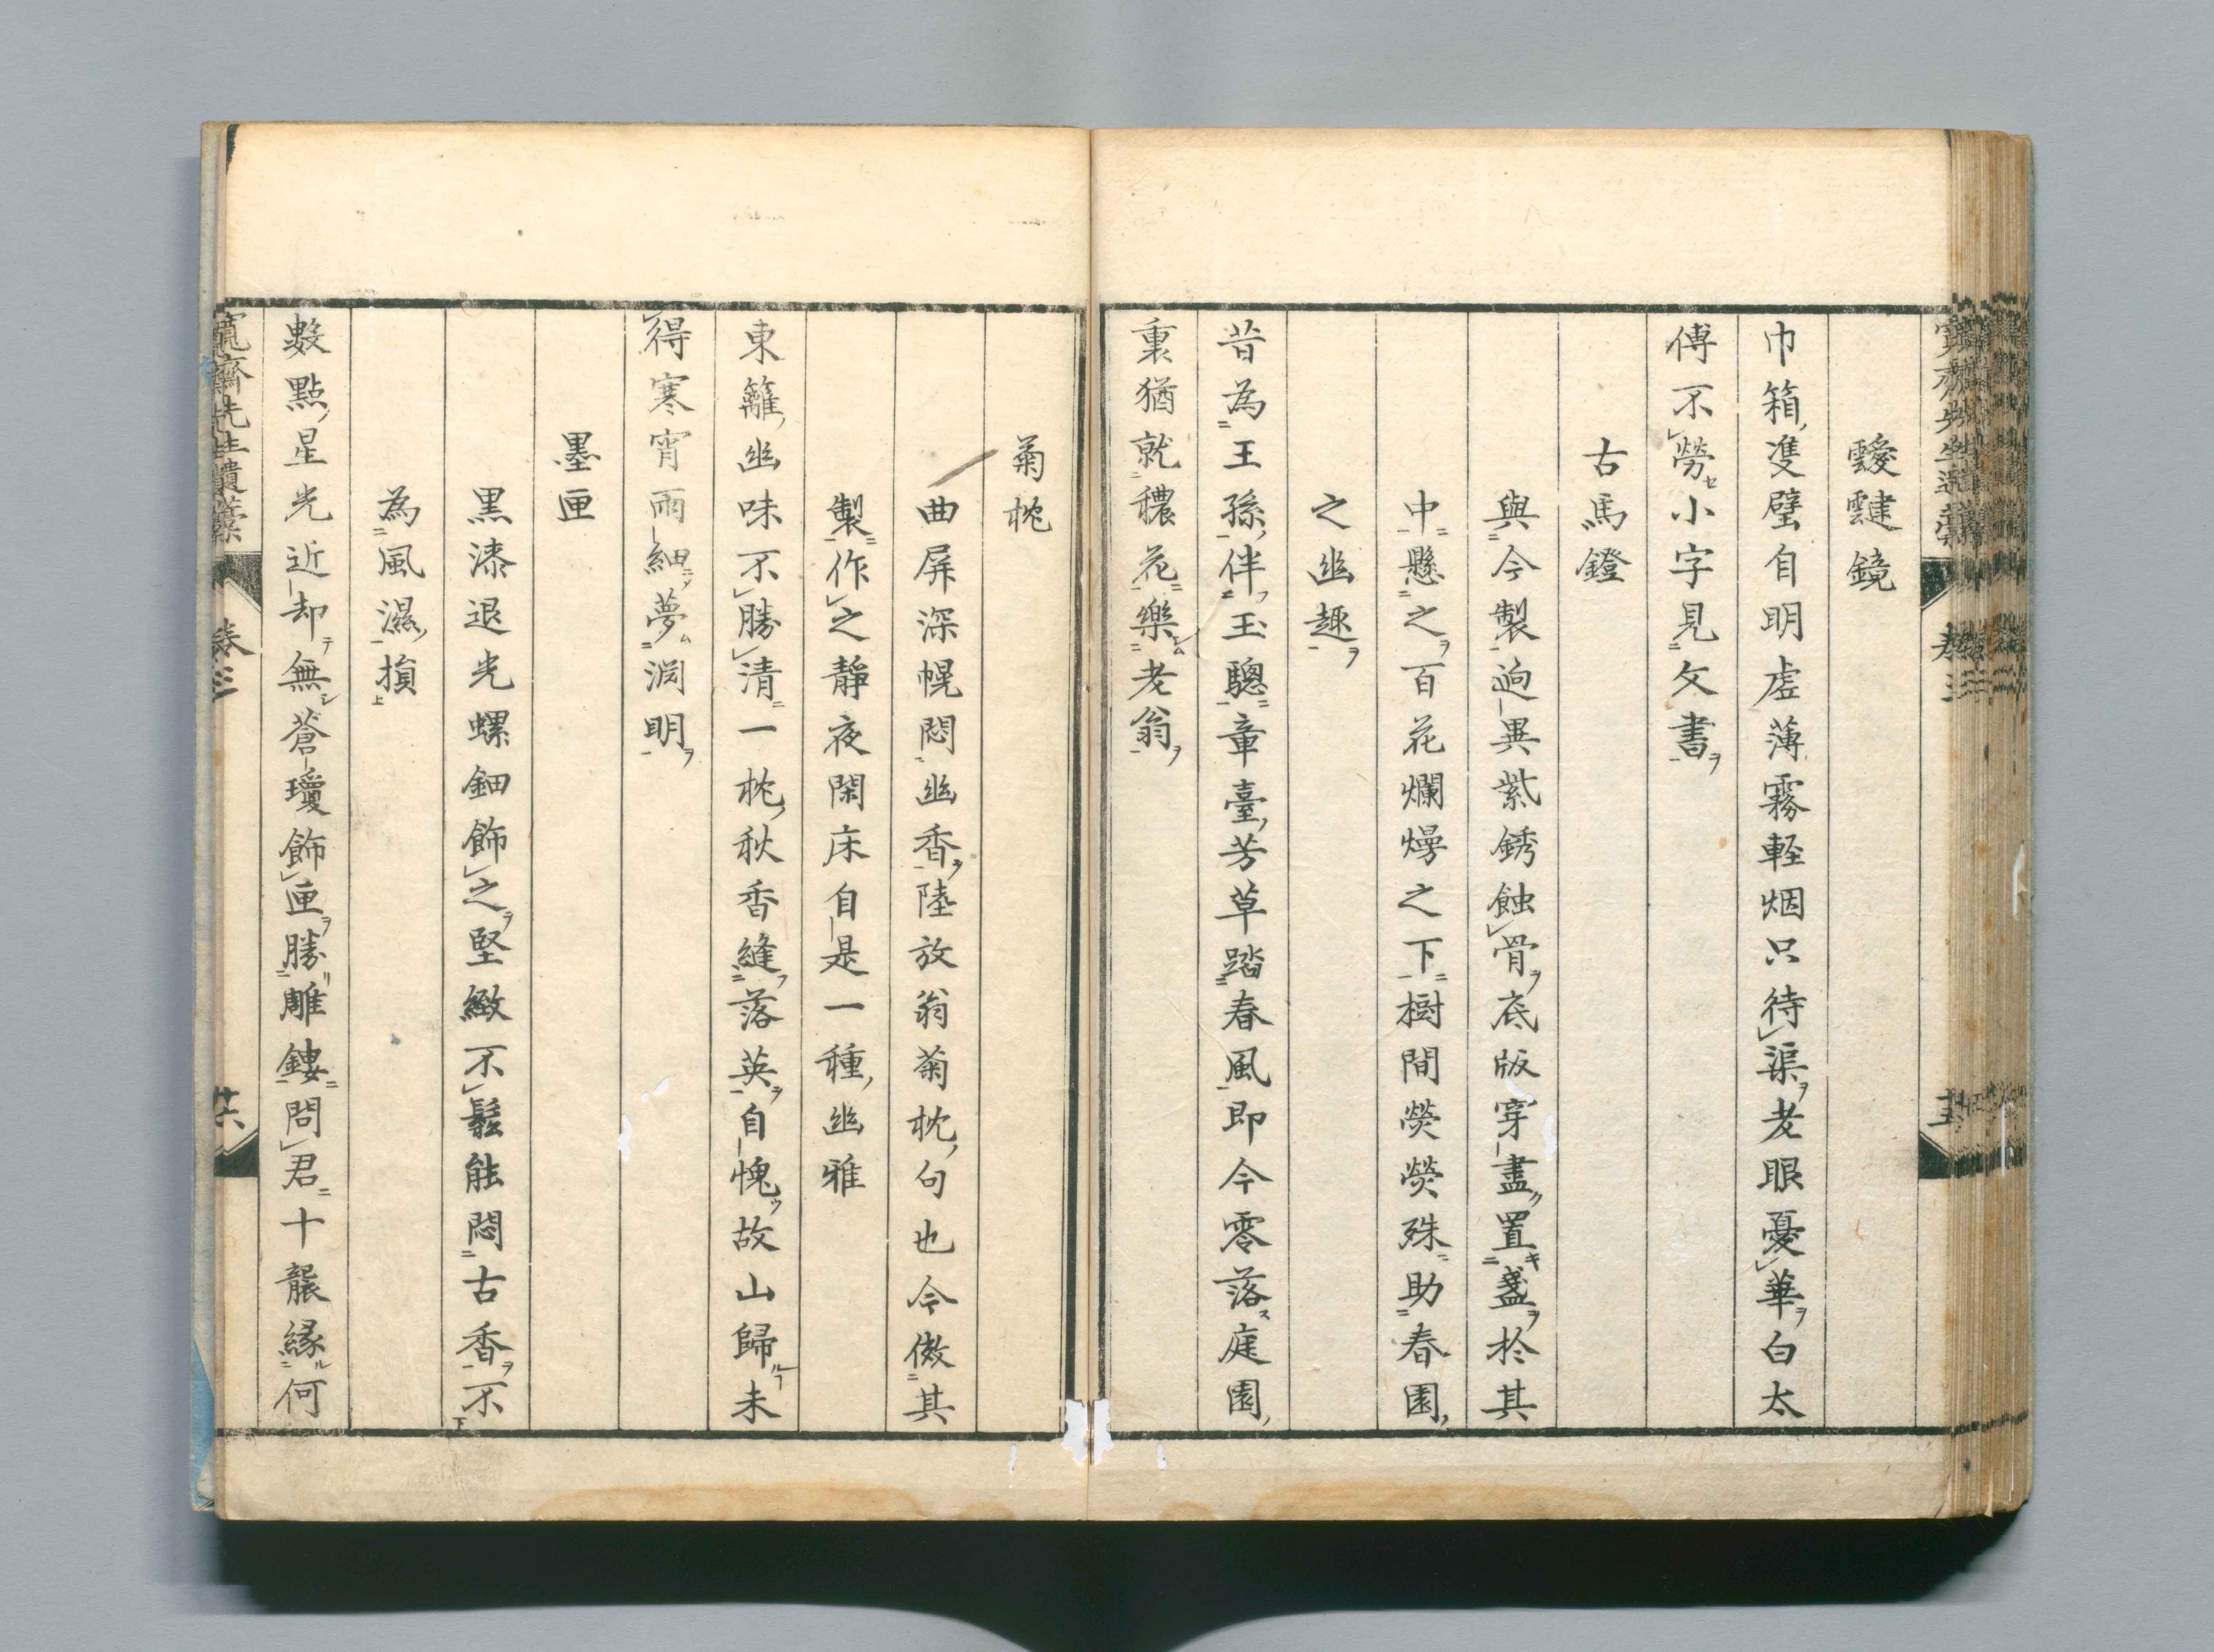 靉靆鏡
巾箱隻璧自明虛薄霧輕烟只待渠老眼憂華白太
傅不勞小字見文書
古馬鐙
與今製逈異紫銹蝕骨底版穿盡置盞於其
中懸之百花爛熳之下樹間熒熒殊助春園
之幽趣
昔為王孫伴玉驄章臺芳草踏春風即今零落庭園
裏猶就穠花樂老翁
菊枕
曲屏深幌悶幽香陸放翁菊枕句也今倣其
製作之靜夜閑床自是一種幽雅
東籬幽味不勝清一枕秋香縫落英自愧故山歸未
得寒宵雨細夢淵明
墨匣
黑漆退光螺鈿飾之堅緻不鬆能悶古香不
為風濕損
數點星光近却無蒼瓊飾匣勝雕鏤問君十襲緣何
寬齋先生遺藁 卷三 廿六